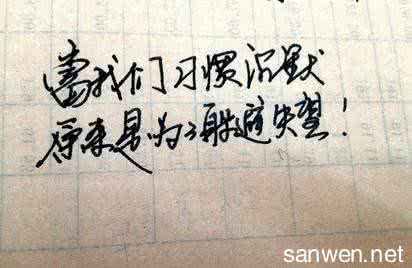 當我们习惯沉默
原来是为了躲避失望!
sanwen.net